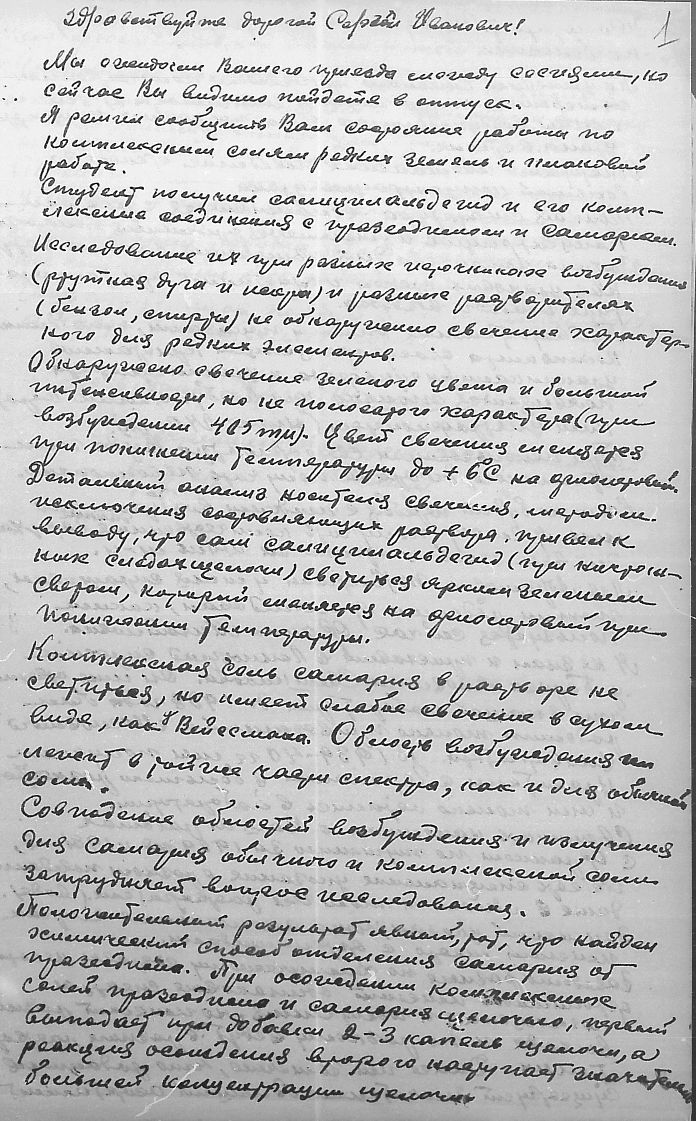 1
Здравствуйте дорогой Сергей Иванович!
Мы ожидали Вашего приезда между сессиями, но
сейчас Вы видимо пойдете в отпуск.
Я решил сообщить Вам состояние работы по
комплексным солям редких земель и плановой
работе.
Студент получил салицилальдегид и его комп-
лексные соединения с празеодимом и самарием.
Исследование их при разных источниках возбуждения
(ртутная дуга и искра) и разных растворителях
(бензол, спирты) не обнаружено свечение характер-
ного для редких элементов.
Обнаружено свечение зеленого цвета и большой
интенсивности, но не полосатого характера (при
возбуждении 405 mμ). Цвет свечения меняется
при понижении температуры до +6°C на фиолетовый.
Детальный анализ носителя свечения, методом
исключения составляющих раствора, привел к
выводу, что сам салицилальдегид (при
слабой щелочи) светиться ярким зеленым
светом, который меняется на фиолетовый при
понижении температуры.
Комплексная соль самария в растворе не
светиться, но имеет слабое свечение в сухом
виде, как у Вейссмана. Область возбуждения
лежит в той же части спектра, как и для обычной
соли.
Совпадение областей возбуждения и излучения
для самария обычного и комплексной соли
затрудняет вопрос исследования.
Положительный результат явный, тот, что найден
химический способ отделения самария от
празеодима. При осаждении комплексных
солей празеодима и самария щелочью, первый
выпадает при добавки 2-3 капель щелочи, а
реакция осаждения второго наступает значительно
большей концентрации щелочи